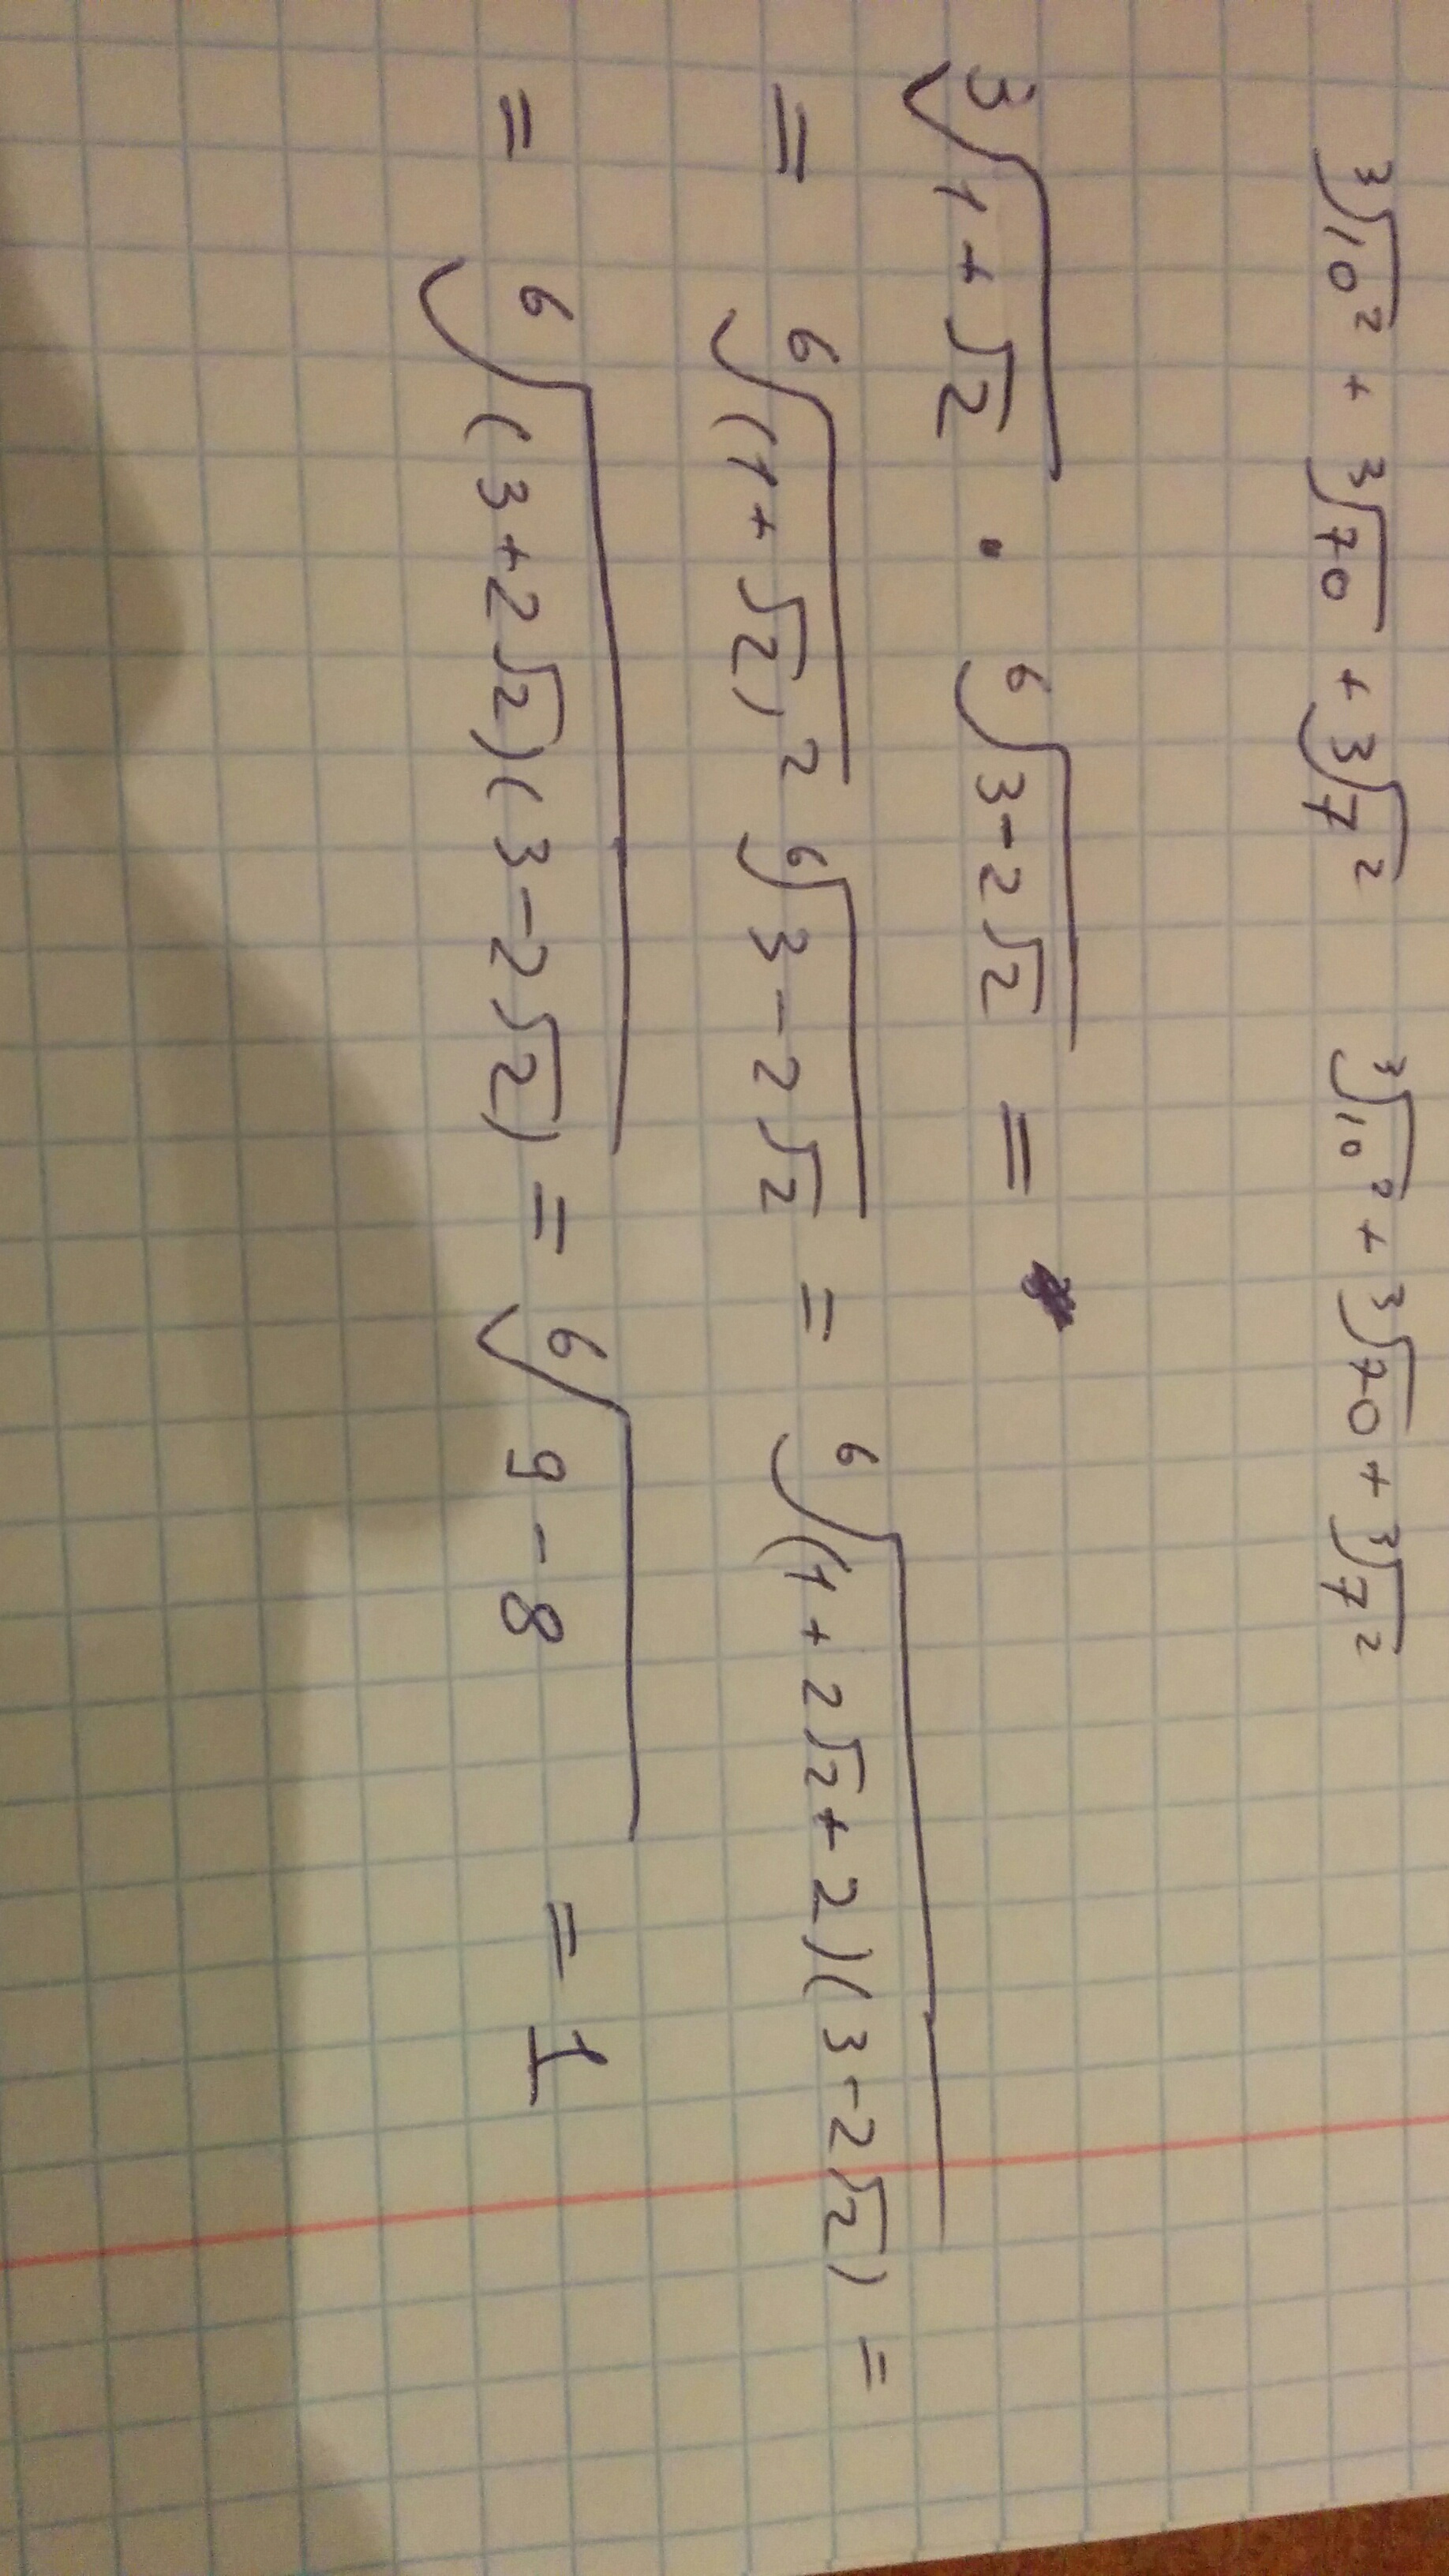 ∛10² + ∛70 + ∛7² ∛10² + ∛70 + ∛7²
∛(1+√2) · ⁶√(3-2√2) =
= ⁶√((1+√2)²) ⁶√(3-2√2) = ⁶√((1+2√2+2)(3-2√2)) =
= ⁶√((3+2√2)(3-2√2)) = ⁶√(9-8) = 1